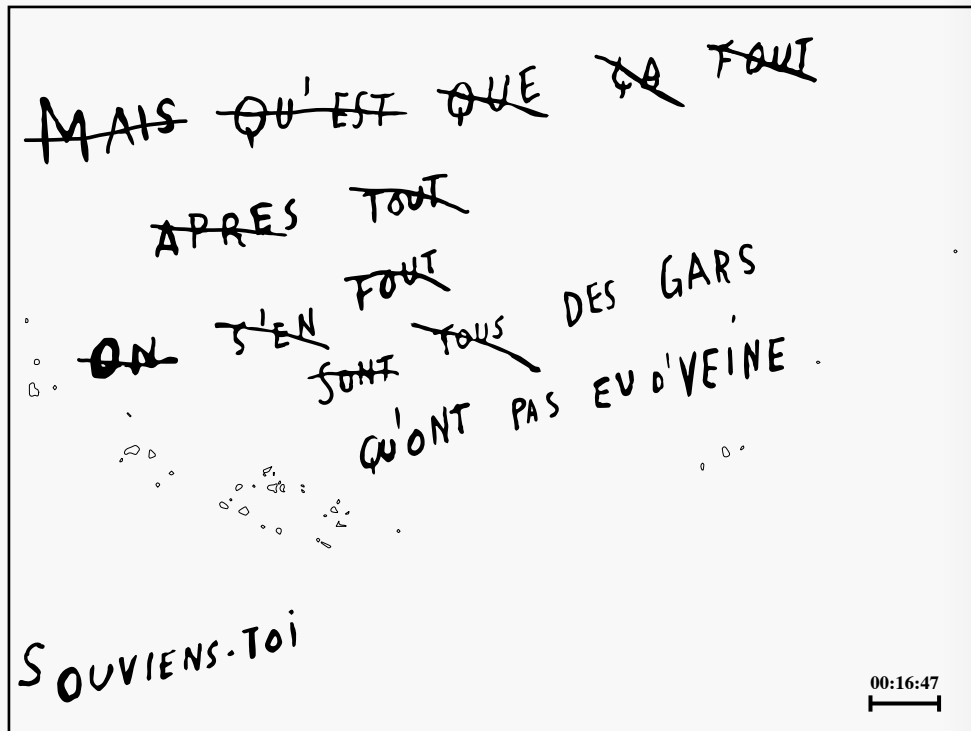 MAIS QU'EST QUE ÇA FOUT
APRES TOUT
FOUT
ON S'EN TOUS DES GARS
SONT
QU'ONT PAS EU D'VEINE
SOUVIENS-TOI
00:16:47